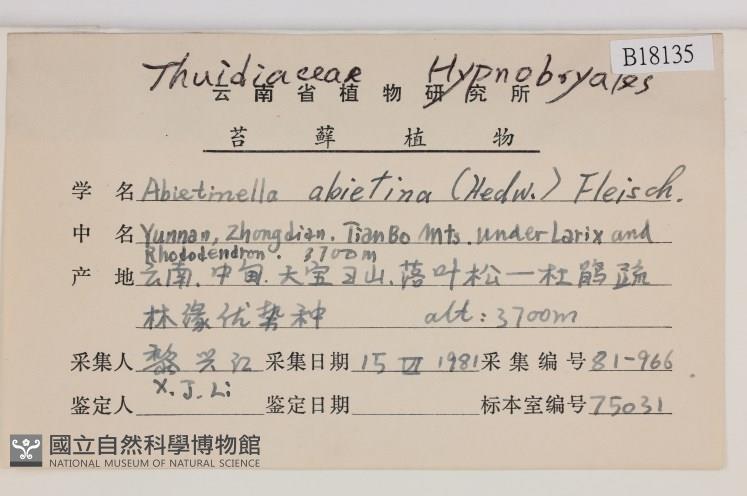 B18135
Thuidiaceae Hypnobryales
云南省植物研究所
苔藓植物
学名 Abietinella abietina (Hedw.) Fleisch.
中名 Yunnan, Zhongdian. TianBo Mts. under Larix and
Rhododendron. 3700m
产地 云南.中甸.大宝山.落叶松一杜鹃疏
林缘优势种 alt: 3700m
采集人 黎兴江 采集日期 15 VI 1981 采集编号 81-966
X. J. Li
鉴定人 鉴定日期 标本室编号 75031
國立自然科學博物館
NATIONAL MUSEUM OF NATURAL SCIENCE